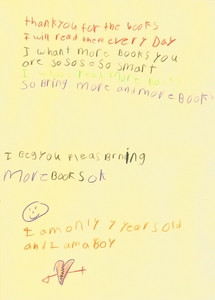 thankyou for the books
I will read them eVERY DAY
I whant more books you
are so so so so smart
I whant read more book
So bring more and more Book
I Beg you pleas Brning
More Books ok
I am only 7 years old
and I am a Boy